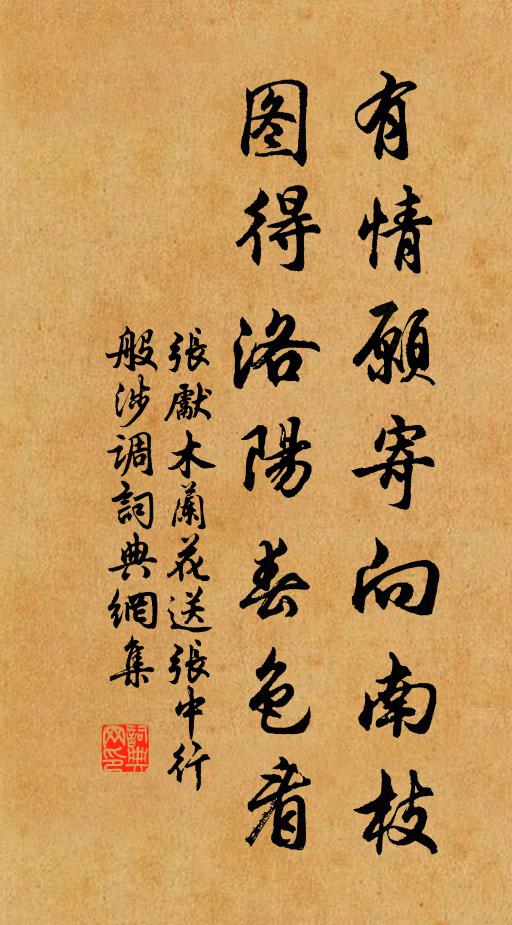 有情願寄向南枝
图得洛陽春色看
張獻木蘭花送張中行
般涉调詞典網集
詞典网印